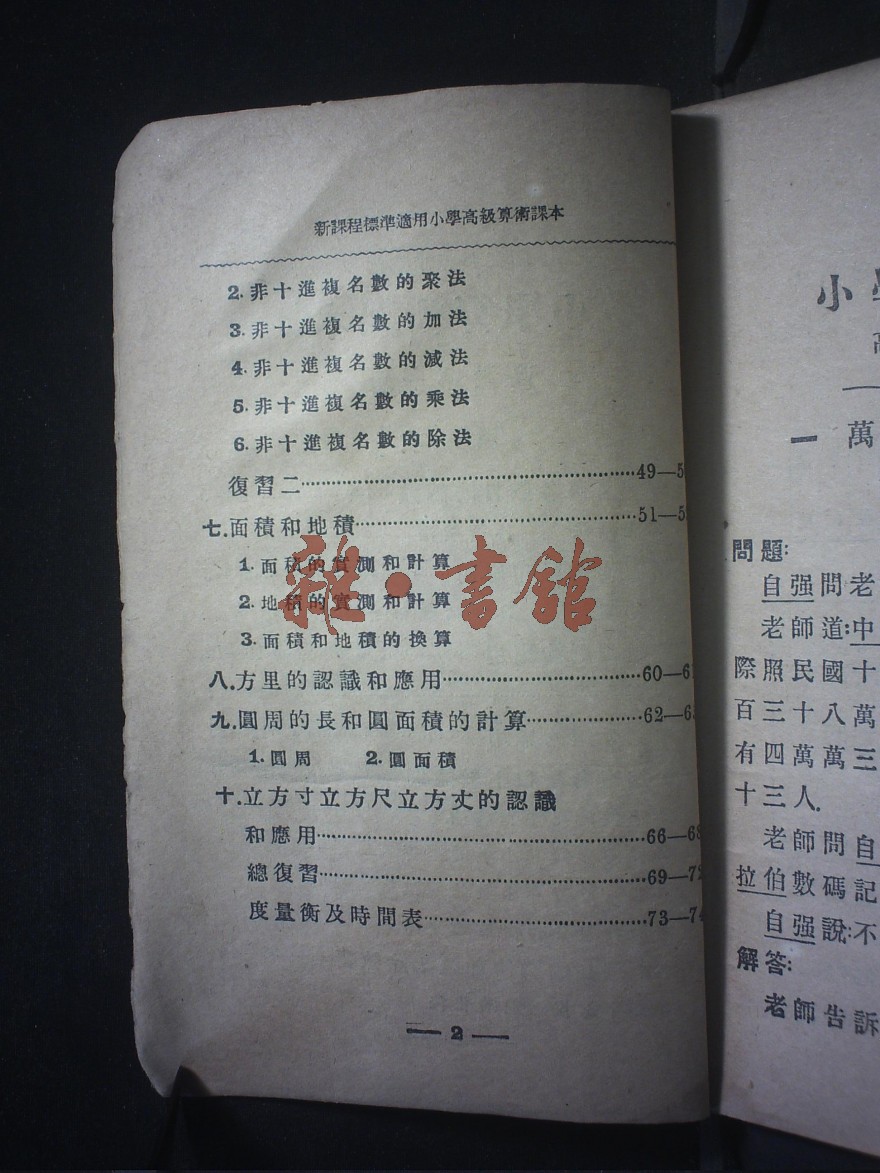 新課程標準適用小學高級算術課本
2. 非十進複名數的聚法
3. 非十進複名數的加法
4. 非十進複名數的減法
5. 非十進複名數的乘法
6. 非十進複名數的除法
復習二……49—5
七.面積和地積……51—5
1. 面積的實測和計算
2. 地積的實測和計算
3. 面積和地積的換算
八.方里的認識和應用……60—61
九.圓周的長和圓面積的計算……62—65
1. 圓周 2. 圓面積
十.立方寸立方尺立方丈的認識
和應用……66—68
總復習……69—72
度量衡及時間表……73—74
— 2 —
雜·書館
小學
高
一 萬
問題:
自强問老
老師道:中
際照民國十
百三十八萬
有四萬萬三
十三人.
老師問自
拉伯數碼記
自强說:不
解答:
老師告訴